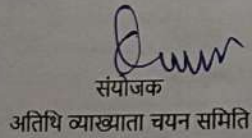 संयोजक
अतिथि व्याख्याता चयन समिति